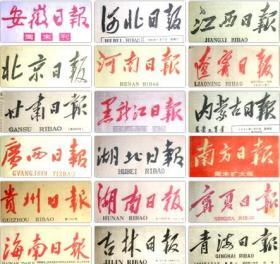 安徽日报
周末刊
河北日报
HEBEI RIBAO
江西日报
JIANGXI RIBAO
北京日报
河南日报
HENAN RIBAO
辽宁日报
LIAONING RIBAO
甘肃日报
GANSU RIBAO
黑龙江日报
内蒙古日报
广西日报
GVANGJSIH YIZBAO
湖北日报
HUBEI RIBAO
南方日报
周末扩大版
贵州日报
GUIZHOU RIBAO
湖南日报
HUNAN RIBAO
宁夏日报
NINGXIA RIBAO
海南日报
吉林日报
JILIN RIBAO
青海日报
QINGHAI RIBAO